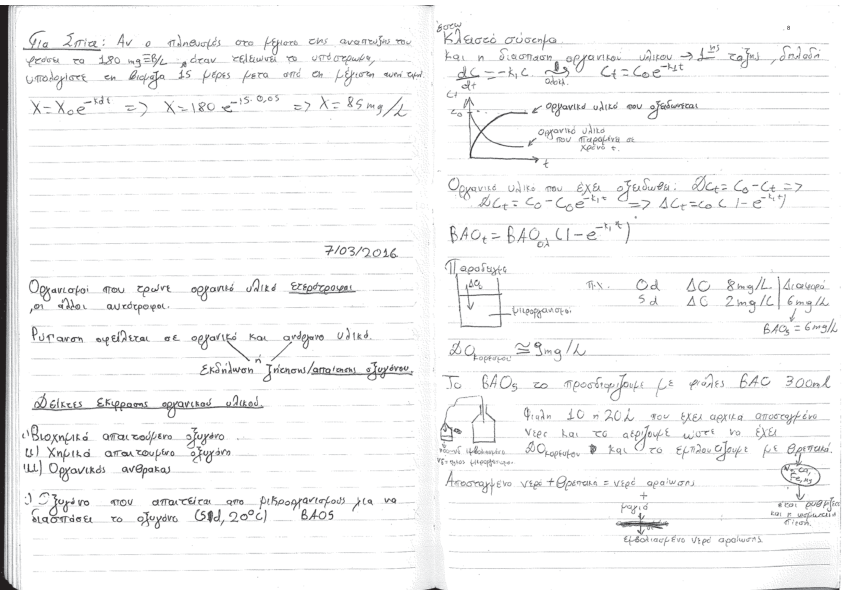 Για Σπίτι: Αν ο πληθυσμός στο μέγιστο της αναπτυξης του
φτάσει τα 180 mg/L, όταν τελειώνει το υπόστρωμα,
υπολογίστε τη βιομάζα 15 μέρες μετα από τη μέγιστη αυτή τιμή.
X = X₀e^-kdt => X = 180 e^-15·0,05 => X = 85 mg/L
7/03/2016
Οργανισμοί που τρώνε οργανικό υλικό ετερότροφοι
, οι άλλοι αυτότροφοι.
Ρύπανση οφείλεται σε οργανικό και ανόργανο υλικό.
ή
Εκδήλωση ζήτησης/απαίτησης οξυγόνου.
Δείκτες έκφρασης οργανικού υλικού.
i) Βιοχημικά απαιτούμενο οξυγόνο
ii) Χημικά απαιτούμενο οξυγόνο
iii) Οργανικός άνθρακας
i) Οξυγόνο που απαιτείται απο μικροοργανισμούς για να
διασπάσει το οξυγόνο (5d, 20°C) BAO5
έστω
Κλειστό σύστημα
και η διάσπαση οργανικού υλικού → 1ης τάξης, δηλαδή
dC/dt = -k₁C => Ct = C₀e^-k₁t
Ct
C₀
οργανικό υλικό που οξειδώνεται
οργανικό υλικό
που παραμένει σε
χρόνο t.
t
Οργανικό υλικό που έχει οξειδωθεί: ΔCt = C₀ - Ct =>
ΔCt = C₀ - C₀e^-k₁t => ΔCt = C₀(1 - e^-k₁t)
BAOt = BAOολ (1 - e^-k₁t)
Παράδειγμα
ΔO₂
μικροοργανισμοί
π.χ. 0d ΔO 8mg/L Διαφορά
5d ΔO 2mg/L 6mg/L
BAO₅ = 6mg/L
ΔOκορεσμού ≅ 9mg/L
Το BAO₅ το προσδιορίζουμε με φιάλες BAO 300ml
Φιάλη 10 η 20L που έχει αρχικά αποσταγμένο
νερό και το αερίζουμε ώστε να έχει
ΔOκορεσμού και το εμπλουτίζουμε με θρεπτικά.
Αποσταγμένο νερό + θρεπτικά = νερό αραίωσης
+
μαγιά
εμβολιασμένο νερό αραίωσης